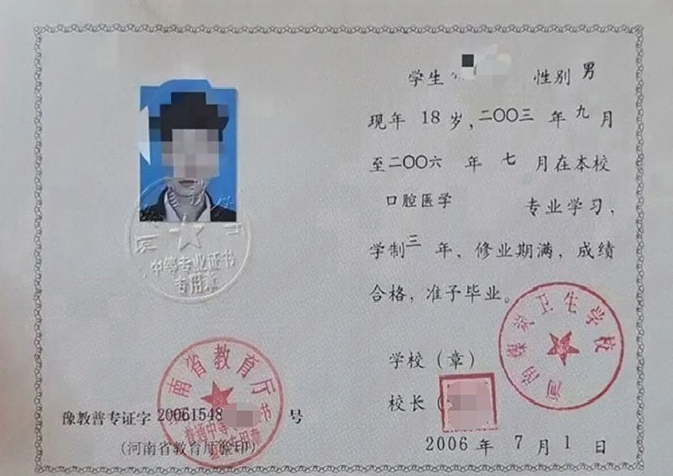 学生 性别 男
现年 18 岁,二〇〇三 年 九 月
至二〇〇六 年 七 月在本校
口腔医学 专业学习,
学制三 年、修业期满,成绩
合格,准予毕业。
学校(章)
校长(
2006 年 7 月 1 日
中等专业证书
专用章
河南 卫生学校
南省教育厅
豫教普专证字 20061548 号
(河南省教育厅 印)